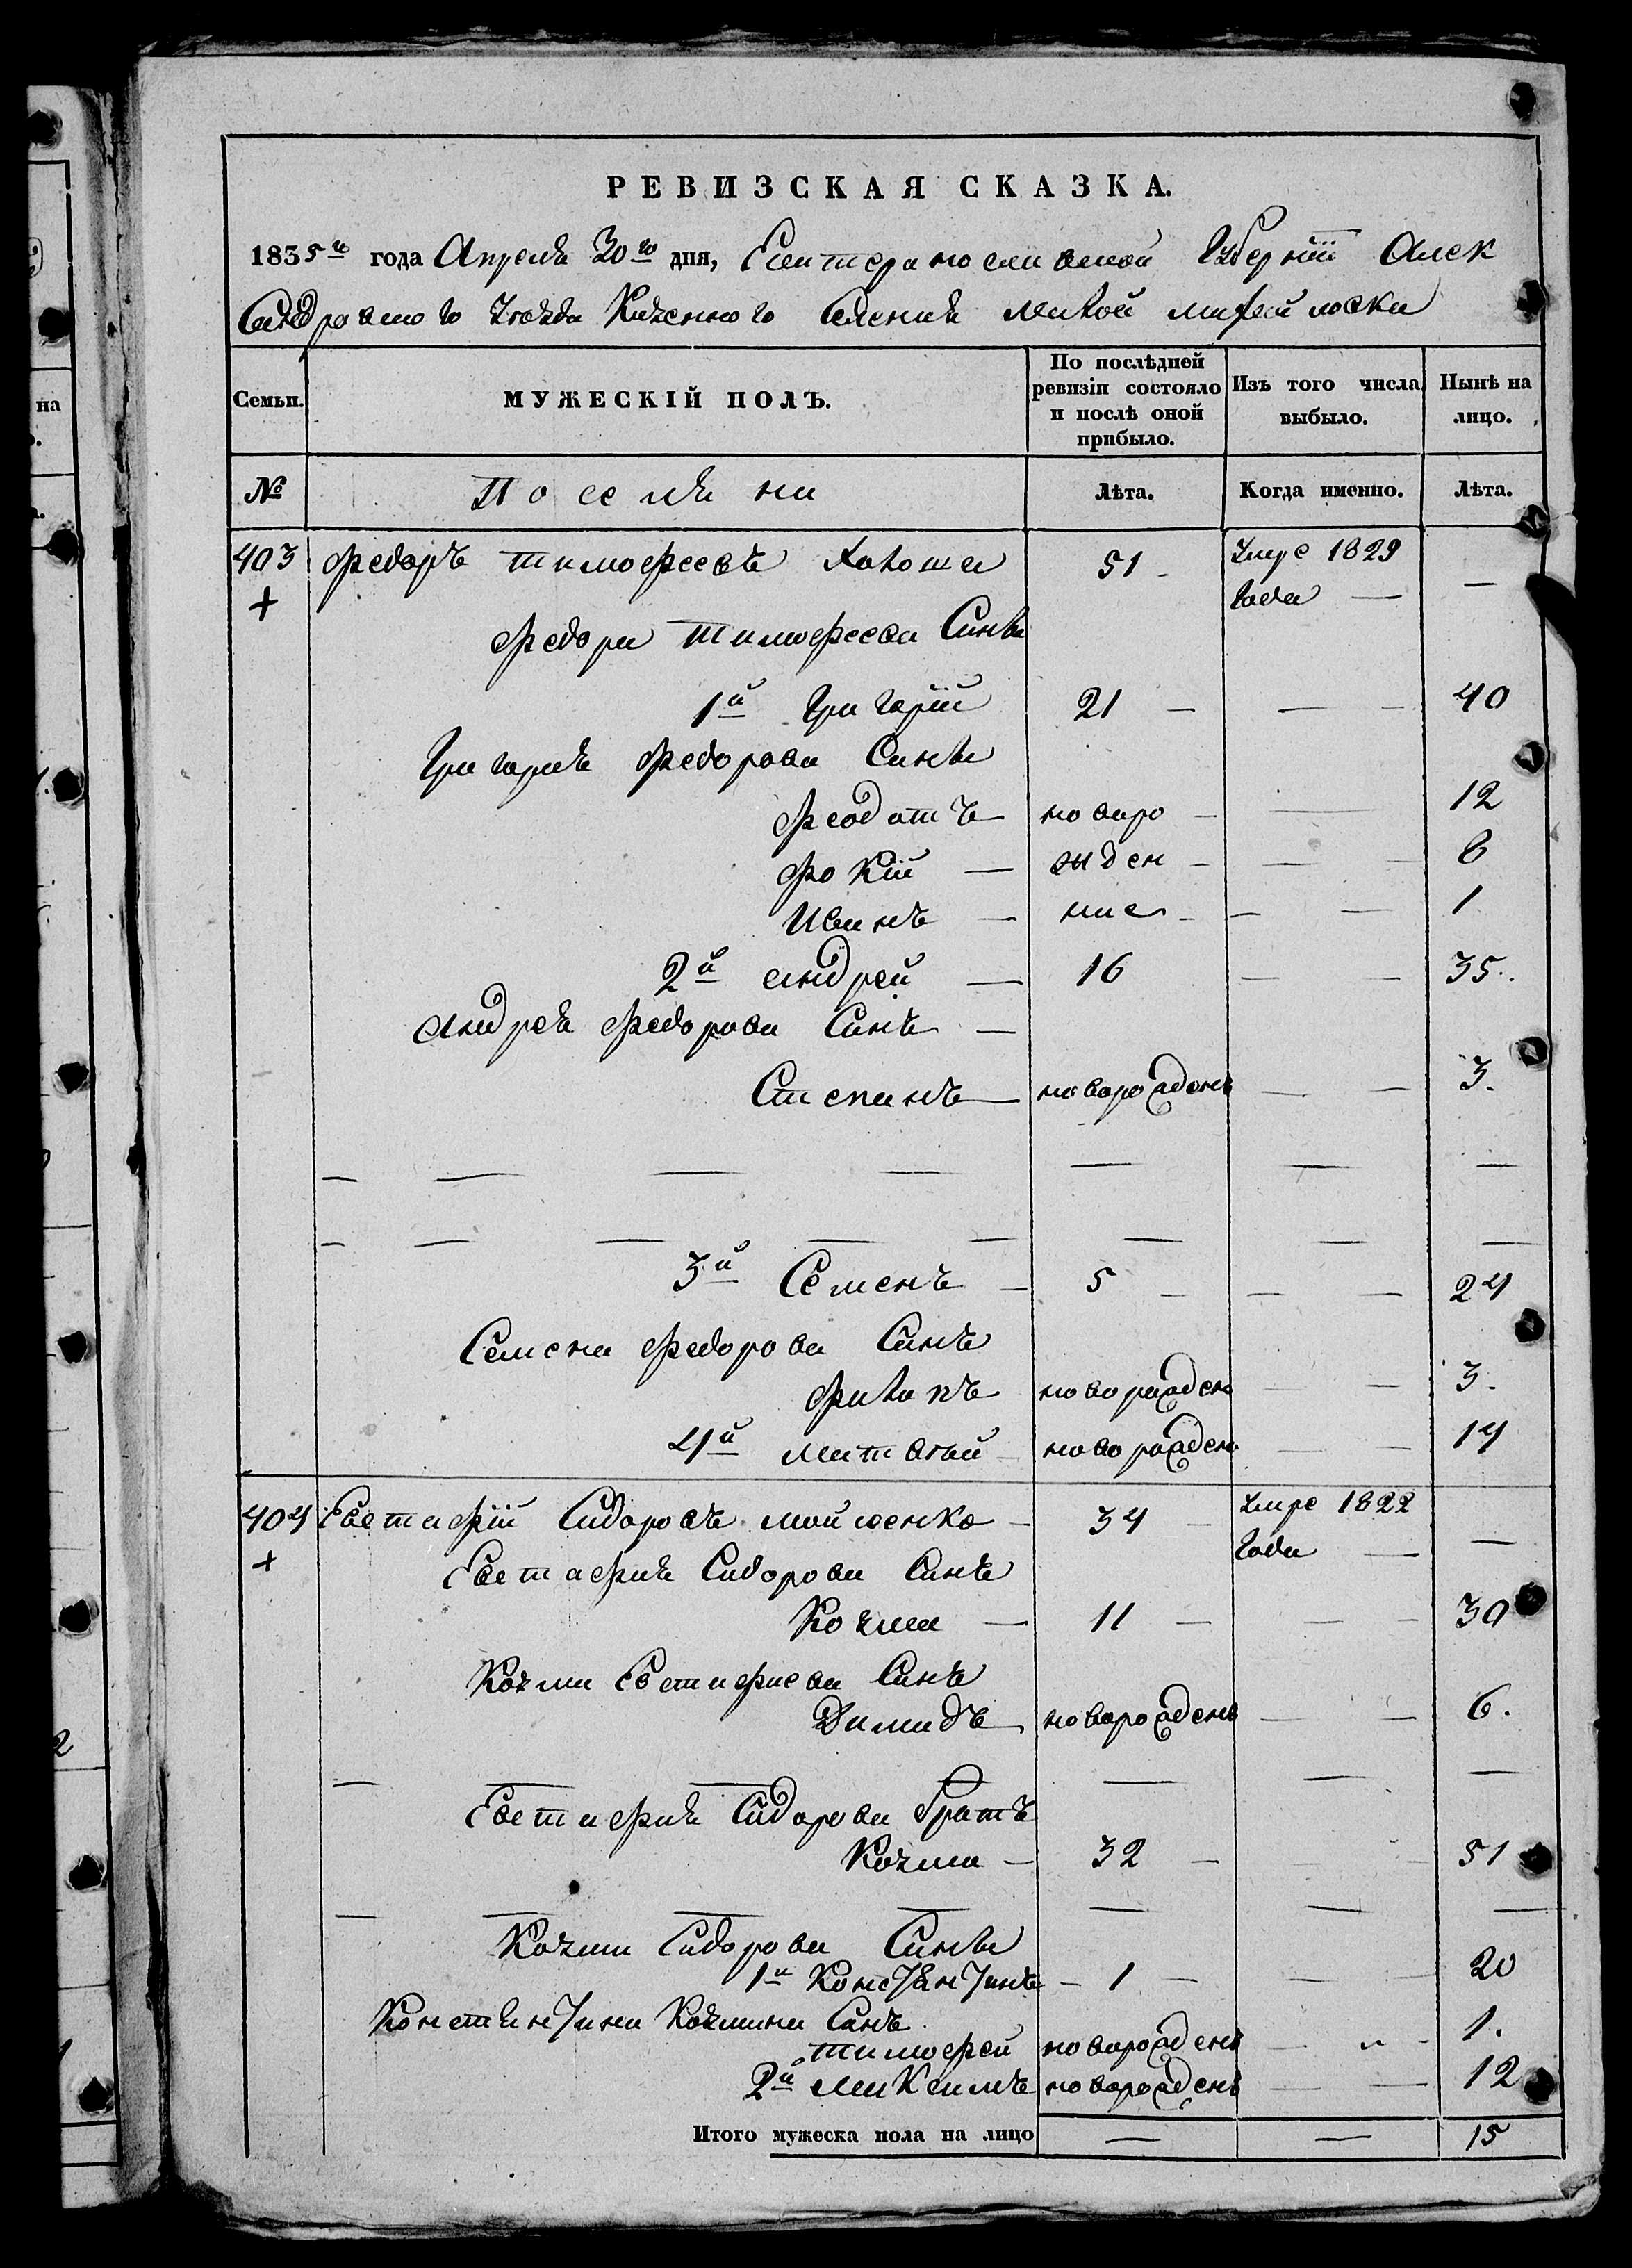 РЕВИЗСКАЯ СКАЗКА.
1835го года Апреля 30го дня, Екатеринославской Губерніи Алек
сандровского Уезда Казенного Селения Малой михайловки
Семьи. МУЖЕСКІЙ ПОЛЪ. По послѣдней ревизіи состояло и послѣ оной прибыло. Изъ того числа выбыло. Нынѣ на лицо.
№ Поселяни Лѣта. Когда именно. Лѣта.
403 Федоръ тимофеевъ 51 Умре 1829
года —
Федора тимофеева Сины
1й Григорій 21 — — 40
Григория Федорова Сины
Феодотъ новаро — 12
Фокій — жден — 6
Иванъ — ные — 1
2й андрей — 16 — 35.
андрея Федорова Синъ —
Степанъ — новорожденъ — 3.
3й Семенъ — 5 — 24
Семена Федорова Синъ
Филипъ новорожден — 3.
4й матвей новорожден — 14
404 Евстафій Сидоровъ мойсеенко 34 Умре 1822
года —
Евстафия Сидорова Синъ
Козма — 11 — 30
Козми Евстафиева Синъ
Димидъ новорожденъ — 6.
Евстафия Сидорова братъ
Козма — 32 — 51
Козми Сидорова Сины
1й Константинъ — 1 — 20
Константина Козмина Синъ
тимофей новорожденъ — 1.
2й Максимъ новорожденъ — 12
Итого мужеска пола на лицо — — 15
на